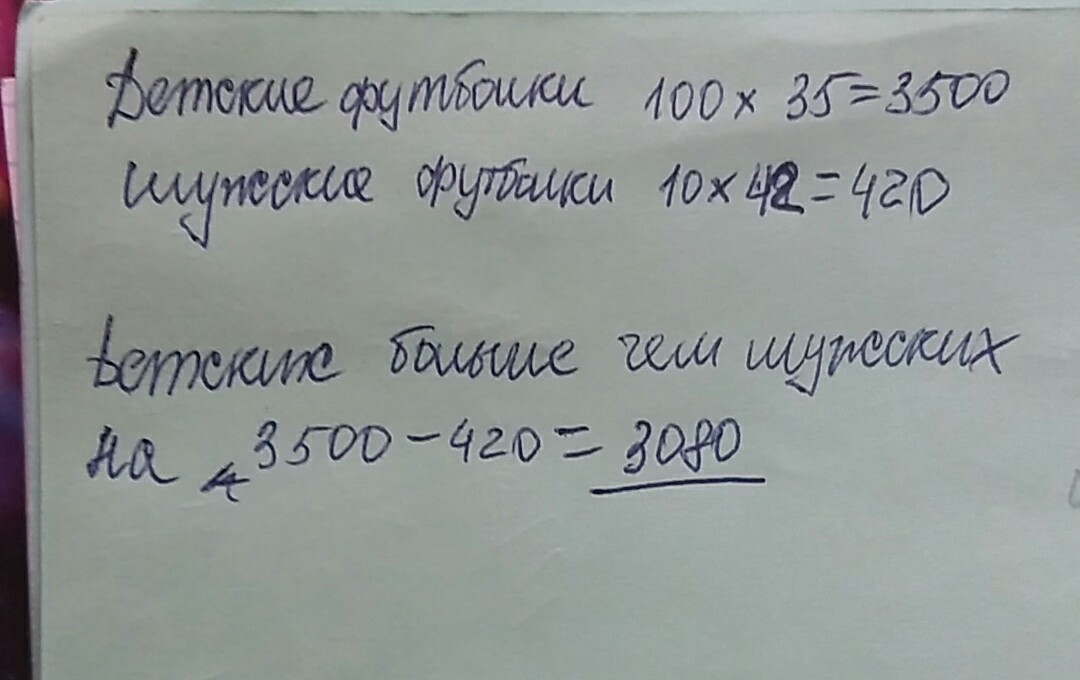 Детские футболки 100 × 35 = 3500
Мужские футболки 10 × 42 = 420
Детских больше чем мужских
на 3500 - 420 = 3080